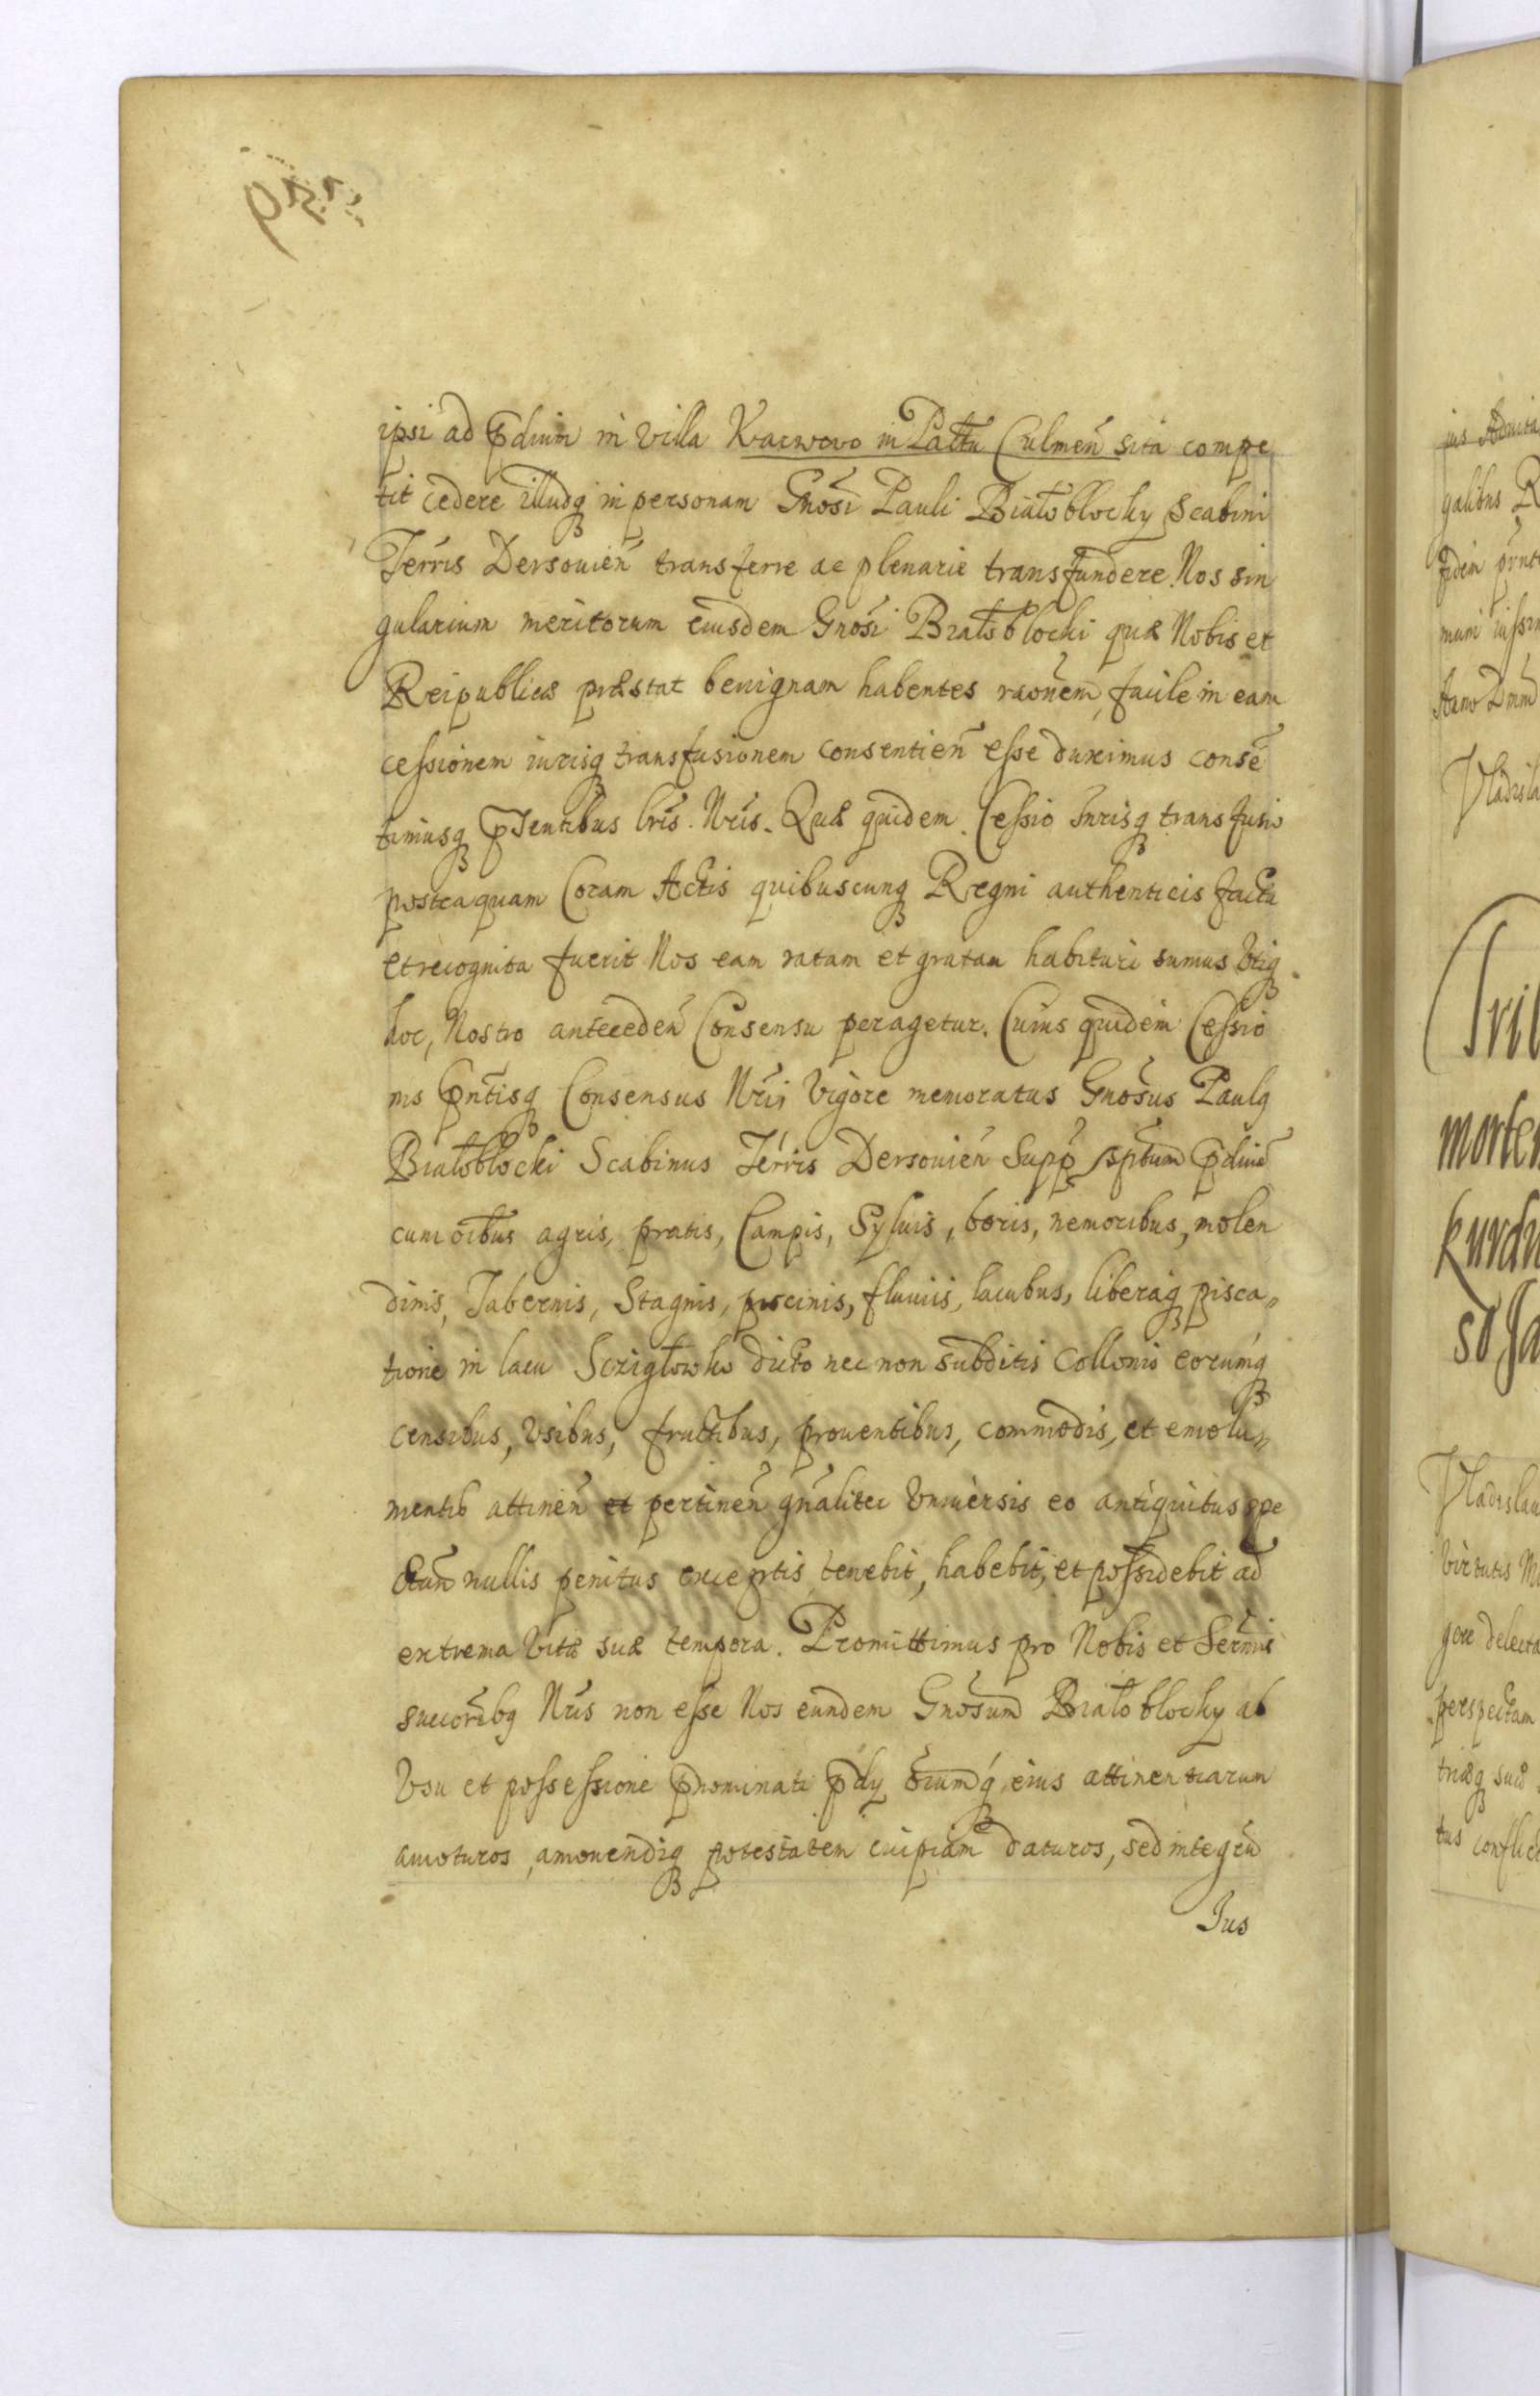 ipsi ad p̄dium in villa Karwowo in Pałtu Culmen̄ sita compe
tit cedere illudq́ in personam Gnōsi Pauli Białobłocky Scabini
Terrīs Dersouień transferre ac plenarie transfundere. Nos sin
gularium meritorum eiusdem Gnōsi Białobłocki quæ Nobis et
Reipublicæ præstat benignam habentes raōnem, facile in eam
cessionem iurisq́ transfusionem consentień esse duximus consē
timusq́ p̄sentibus lrīs. Nrīs. Quæ quidem Cessio Iurisq́ transfusio
posteaquam Coram Actis quibuscunq́ Regni authenticis facta
et recognita fuerit Nos eam ratam et gratam habituri sumus vtiq́
hoc, Nostro anteceden̄ Consensu peragetur. Cuius quidem Cessio
nis p̄ntisq́ Consensus Nrīi vigore memoratus Gnōsus Paulq
Białobłocki Scabinus Terrīs Dersouień sup̄p̄ sp̄tum p̄diuē
cum oībus agris, pratis, Campis, Syluis, boris, nemoribus, molen
dinis, Tabernis, Stagnis, piscinis, fluuiis, lacubus, liberaq́ pisca„
tione in lacu Scziglowko dicto nec non subditis collonis eorumq́
censibus, vsibus, fructibus, prouentibus, commodis, et emolu„
mentis attinen̄ et pertinen̄ gn̄aliter vniuersis eo antiquitus spe
ctan̄ nullis penitus exceptis tenebit, habebit, et possidebit ad
extrema vitæ suæ tempora. Promittimus pro Nobis et Sermīs
succorībq Nrīs non esse Nos eundem Gnōsum Białobłocky ab
vsu et possessione p̄nominati p̄dy oīumq́ eius attinentiarum
amoturos, amouendiq́ potestatem cuipiam daturos, sed integrū
Ius